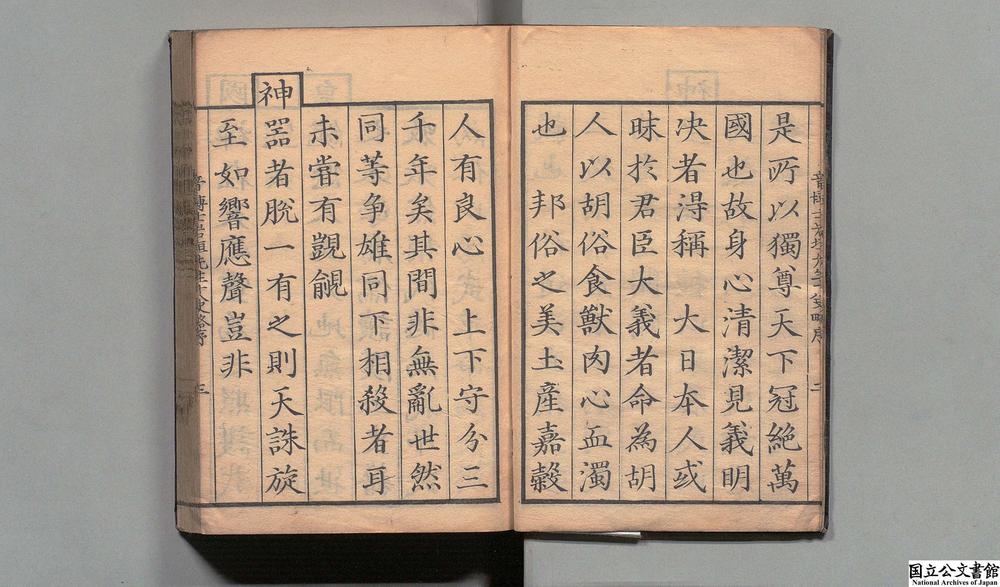 是所以獨尊天下冠絶萬
國也故身心清潔見義明
决者淂稱 大日本人或
昧於君臣大義者命為胡
人以胡俗食獸肉心血濁
也 邦俗之美土産嘉穀
人有良心 上下守分三
千年矣其間非無亂世然
同等争雄同下相殺者耳
未甞有覬覦
神
噐者脱一有之則天誅旋
至如響應聲豈非
三
国立公文書館
National Archives of Japan